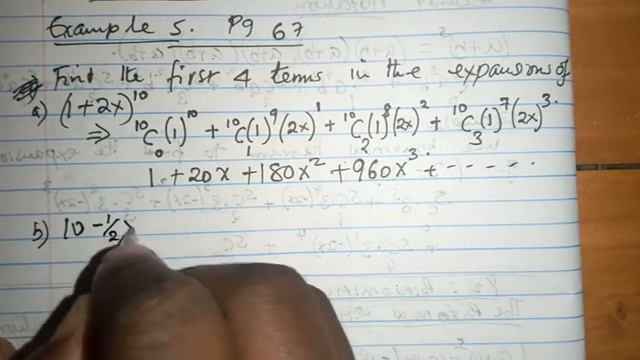 Example 5. Pg 67
Find the first 4 terms in the expansions of
a) (1+2x)^10
⇒ ^10C_0(1)^10 + ^10C_1(1)^9(2x)^1 + ^10C_2(1)^8(2x)^2 + ^10C_3(1)^7(2x)^3.
1 + 20x + 180x^2 + 960x^3 + - - - - .
b) 10 - 1/2